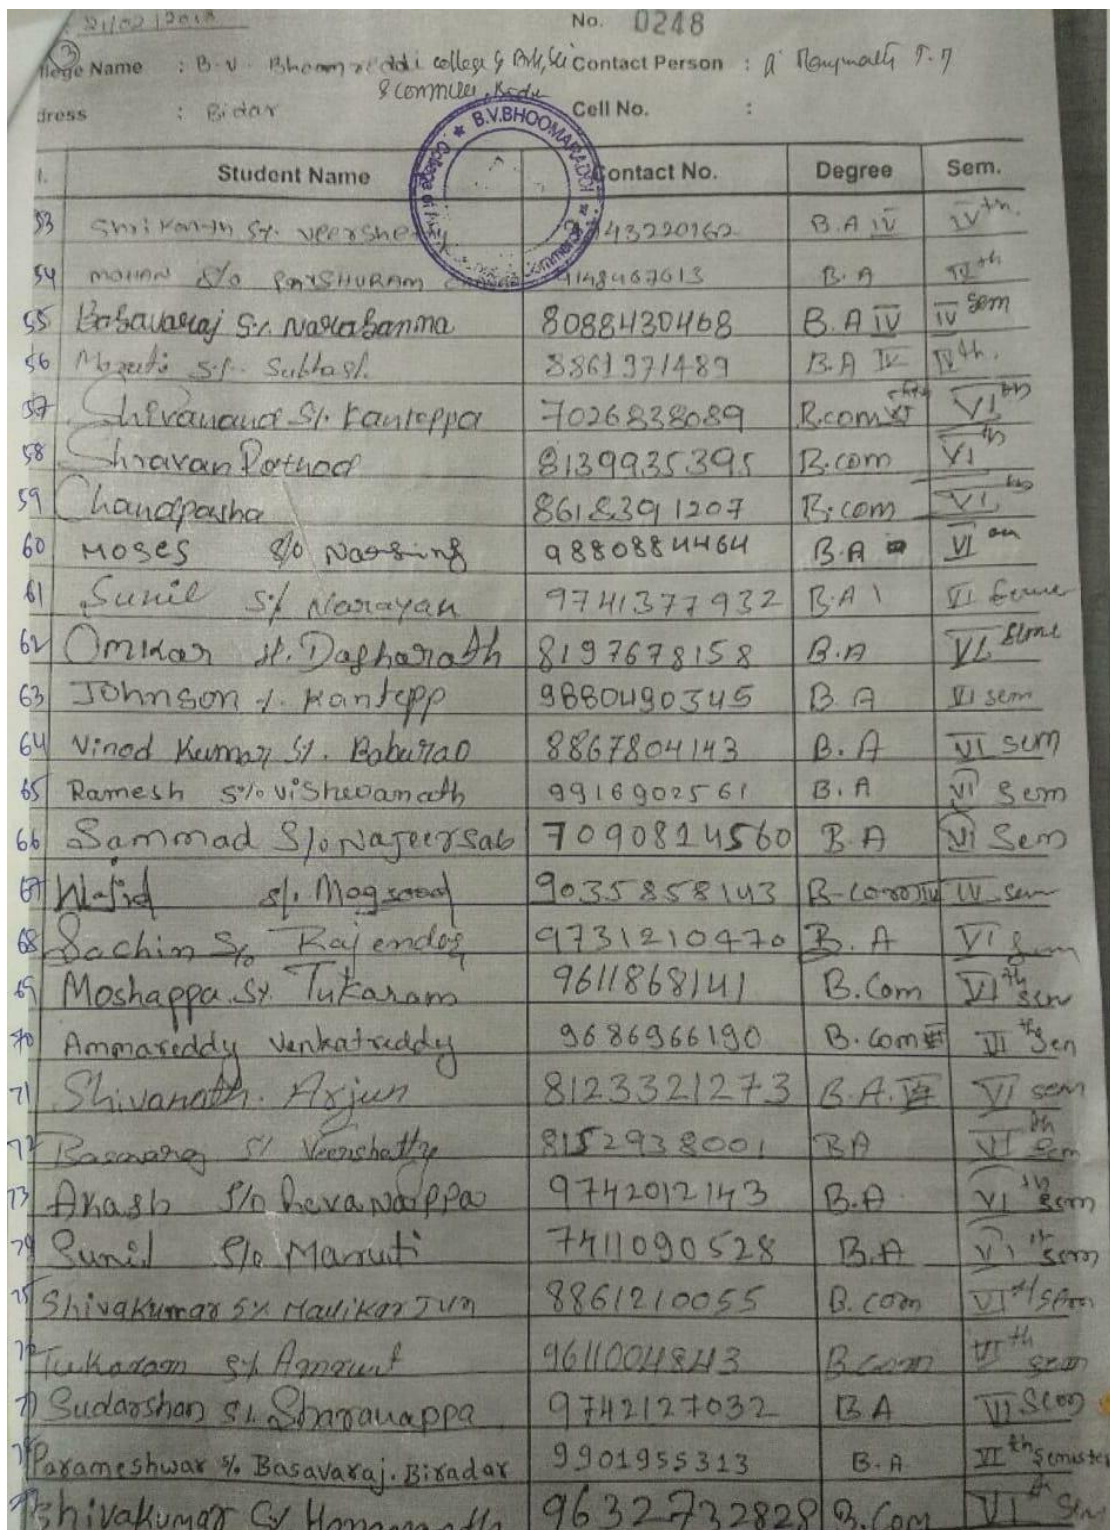 21/02/2018 No. 0248
③
llege Name : B.V. Bhoomreddi college of Art, Sci Contact Person :
& Commerce, Bidar
dress : Bidar Cell No. :
B.V.BHOOMARADDI
College of
l. Student Name Contact No. Degree Sem.
53 Shrikanth S/. Veershe 43220162 B.A IV IVth.
54 MOHAN S/O PARSHURAM 9148467613 B.A IVth
55 Basavaraj S/. Narasanna 8088430468 B.A IV IV Sem
56 Maruti S/. Subhash. 8861971489 B.A IV IVth.
57 Shivanand S/. Kanteppa 7026838089 B.com VIth
58 Shravan Rathod 8139935395 B.com VIth
59 Chandpasha 8618391207 B.com VIth
60 MOSES S/o Narsing 9880884464 B.A VI
61 Sunil S/. Narayan 9741377932 B.A VI
62 Omkar S/. Dasharath 8197678158 B.A VI
63 Johnson S/. Kantepp 9880490345 B.A VI sem
64 Vinod Kumar S/. Baburao 8867804143 B.A VI sem
65 Ramesh S/o Vishwanath 9916902561 B.A VI Sem
66 Sammad S/o Najeersab 7090814560 B.A VI Sem
67 Wajid S/. Maqsood 9035858143 B-com IV IV sem
68 Sachin S/o Rajender 9731210470 B.A VI Sem
69 Moshappa S/. Tukaram 9611868141 B.Com VIth sem
70 Ammareddy Venkatreddy 9686966190 B.com VIth Sen
71 Shivanath. Arjun 8123321273 B.A. VI sem
72 Basavaraj S/. Veershatty 8152938001 BA VIth Sem
73 Akash S/o Revanappa 9742012143 B.A. VIth Sem
74 Sunil S/o Maruti 7411090528 B.A VIth Sem
75 Shivakumar S/. MallikarJun 8861210055 B.com VIth Sem
76 Tukaram S/. Amrut 9611004843 B.com VIth sem
77 Sudarshan S/. Sharanappa 9742127032 BA VI Sem
78 Parameshwar S/o Basavaraj. Biradar 9901955313 B.A. VIth Semister
Shivakumar S/ 9632732828 B.Com VIth Sem